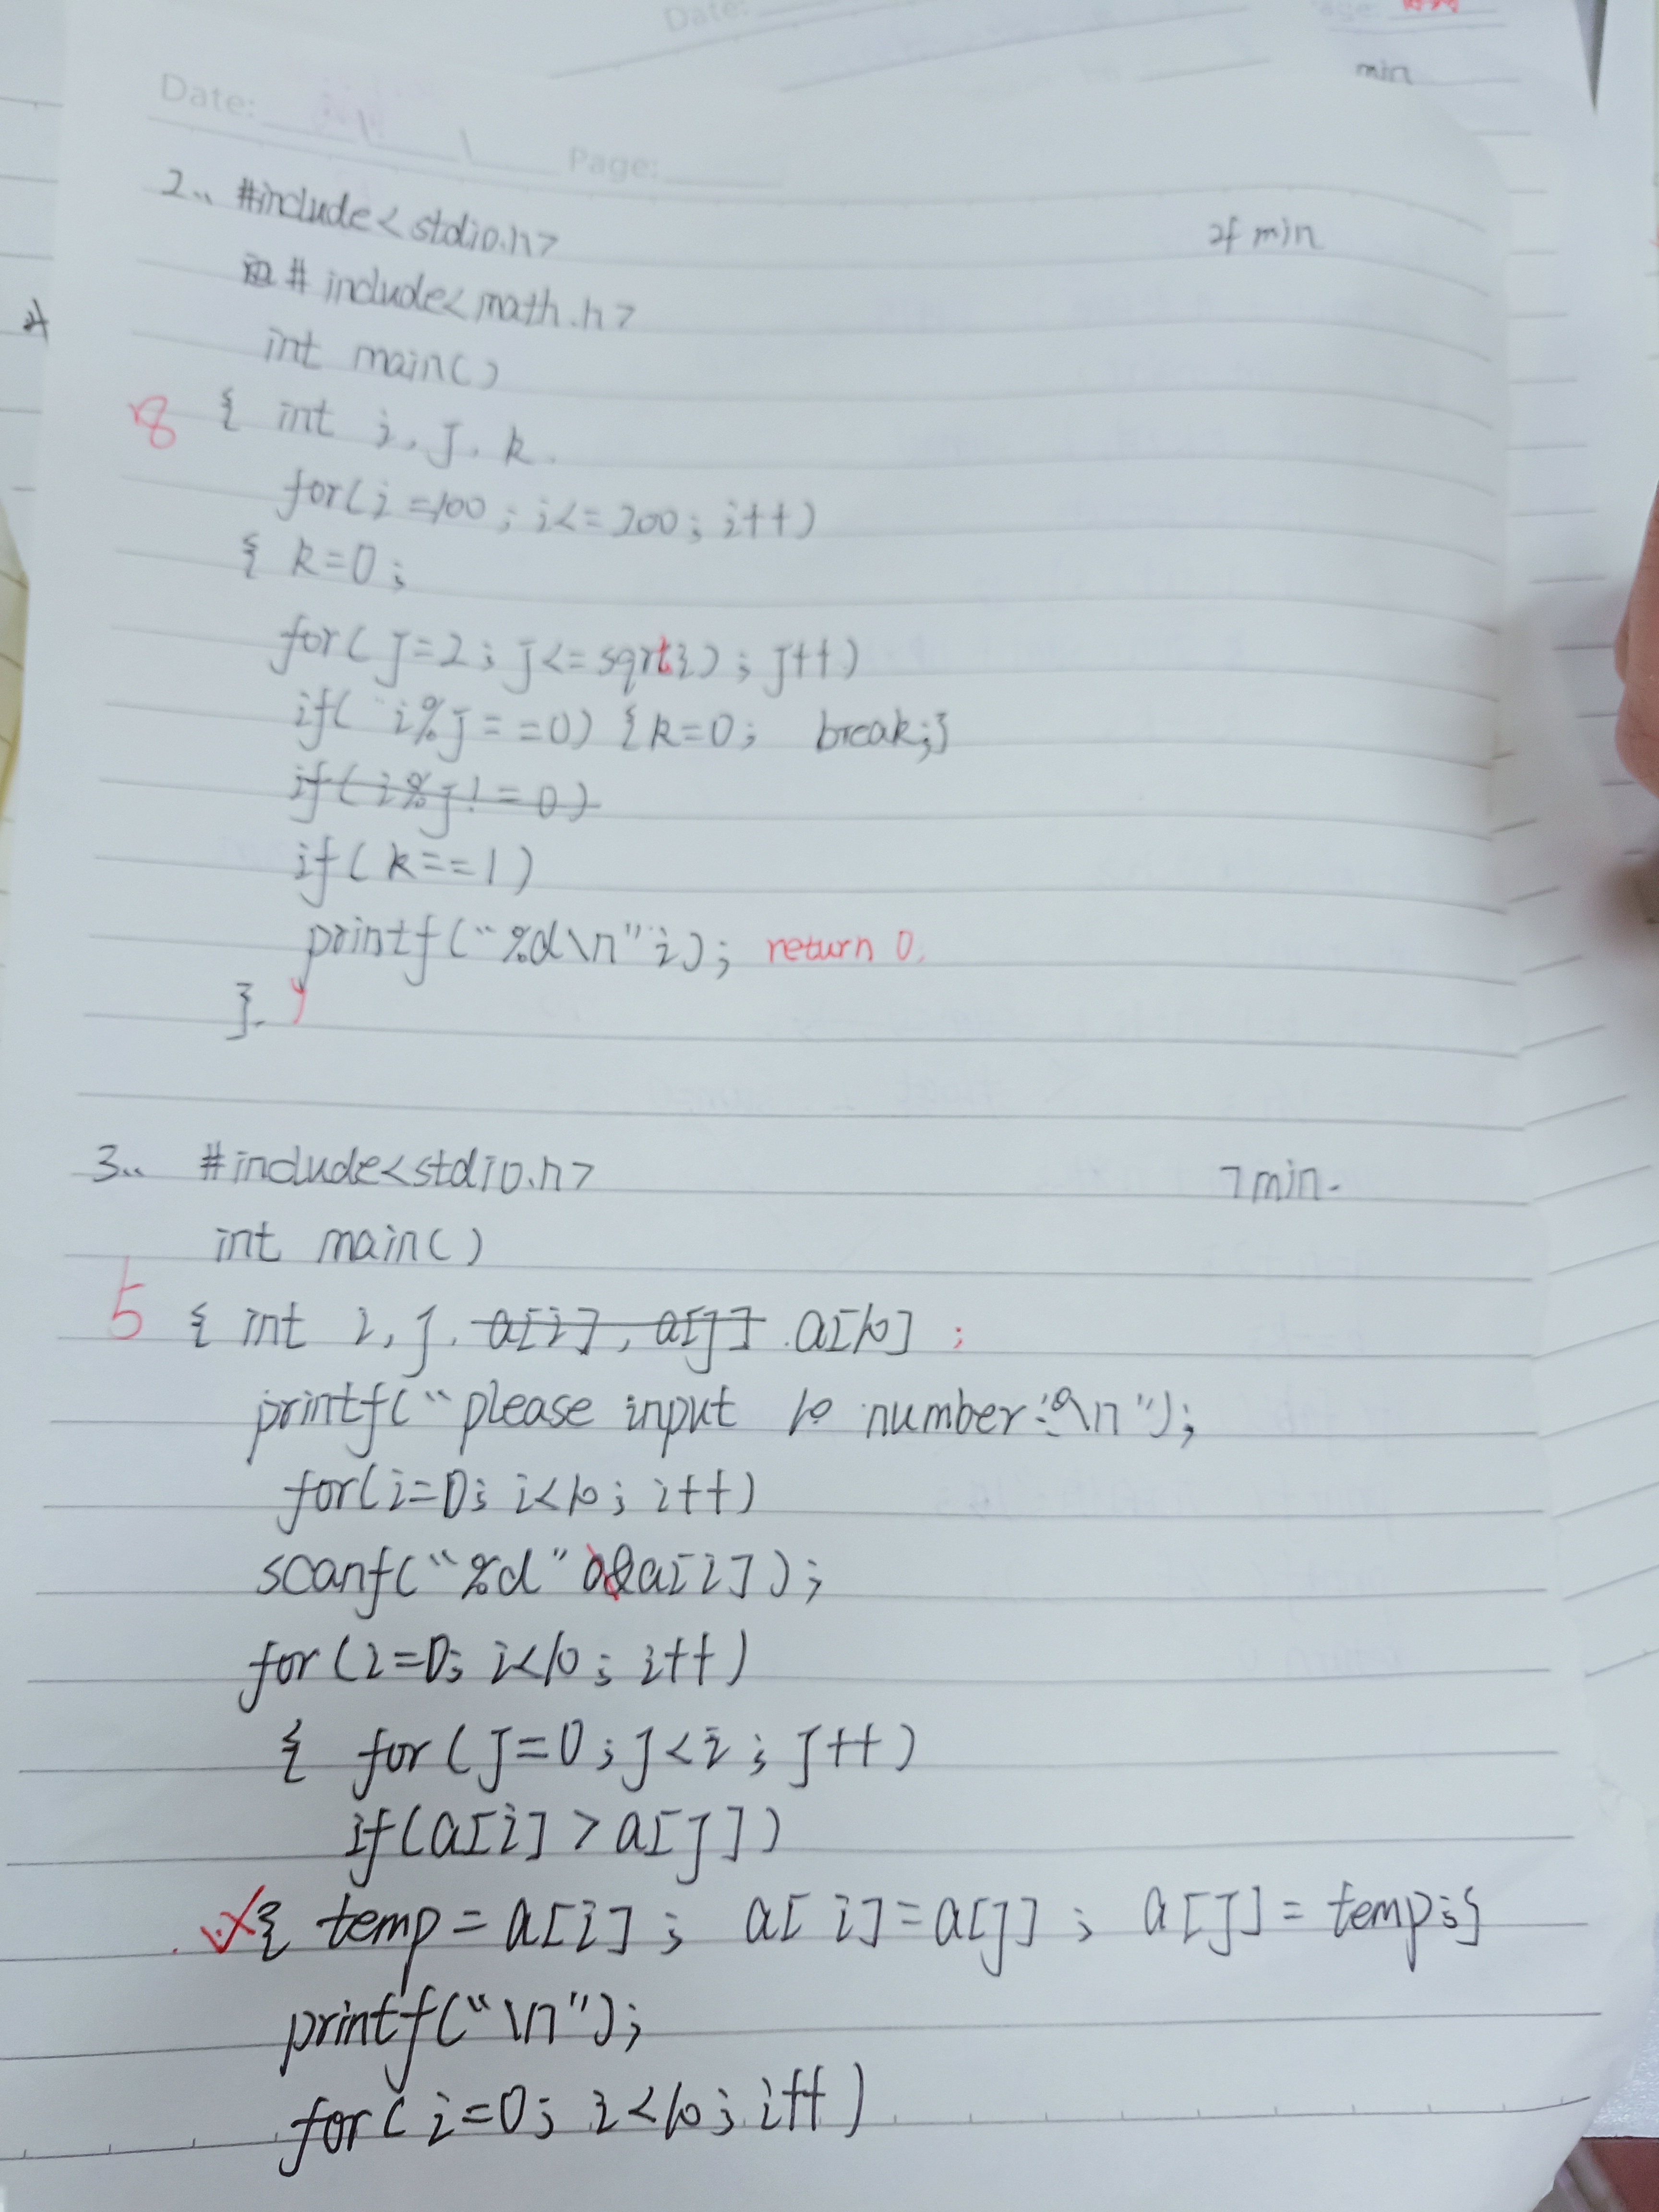 Date:
min
Date: Page:
2.. #include<stdio.h>
24 min
# include<math.h>
int main()
8
{ int i, j, k.
for(i=100; i<=200; i++)
{ k=0;
for(j=2; j<=sqrti); j++)
if( i%j==0) {k=0; break;}
if(i%j!=0)
if(k==1)
printf("%d\n" i); return 0.
}. }
3.. #include<stdio.h>
7min.
int main()
5
{ int i, j, a[i], a[j] a[10] ;
printf("please input 10 number:\n");
for(i=0; i<10; i++)
scanf("%d" &a[i]);
for(i=0; i<10; i++)
{ for(j=0; j<i; j++)
if(a[i]>a[j])
{ temp=a[i]; a[i]=a[j]; a[j]=temp;}
printf("\n");
for(i=0; i<10; i++)